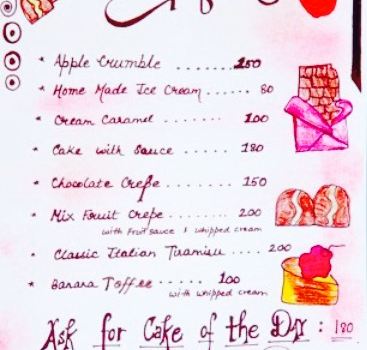 * Apple Crumble ....... 150
* Home Made Ice Cream ...... 80
* Cream Caramel ....... 100
* Cake with Sauce ...... 180
* Chocolate Crepe ...... 150
* Mix Fruit Crepe ...... 200
with Fruit sauce & whipped cream
* Classic Italian Tiramisu .... 200
* Banana Toffee ..... 100
with whipped cream
Ask for Cake of the Day : 180